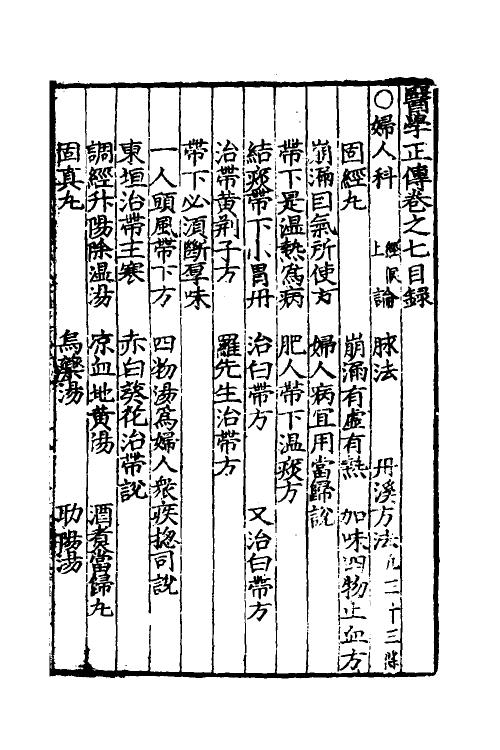 醫學正傳卷之七目錄
○婦人科　經脈上　論　脉法　丹溪方法凡三十三條
固經丸　崩漏有虛有熱　加味四物止血方
崩漏因氣所使方　婦人病宜用當歸說
帶下是温熱爲病　肥人帶下温痰方
結痰帶下小胃丹　治白帶方　又治白帶方
治帶黄荆子方　羅先生治帶方
帶下必須斷厚味
一人頭風帶下方　四物湯爲婦人衆疾揔司說
東垣治帶主寒　赤白葵花治帶說
調經升陽除温湯　凉血地黄湯　酒煮當歸丸
固真丸　烏藥湯　助陽湯